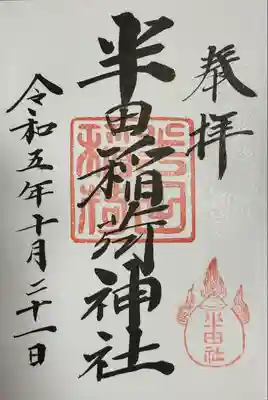 奉拝
半田稲荷神社
令和五年十月二十一日
半田社